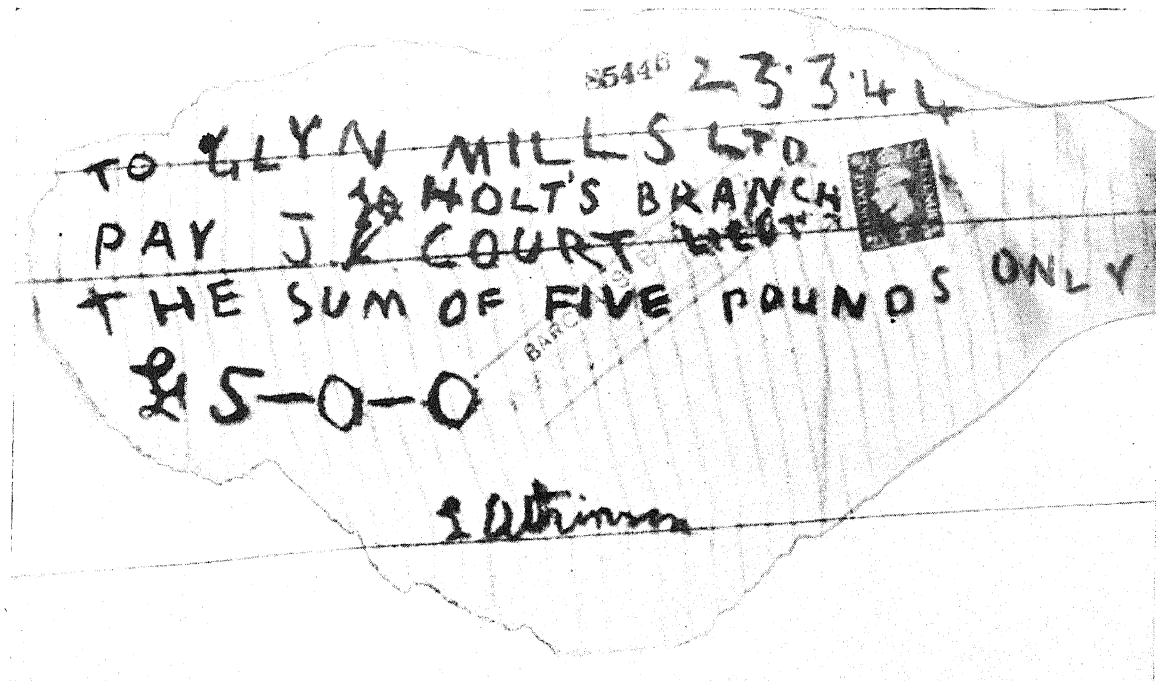 85446 23.3.44
TO GLYN MILLS LTD
HOLT'S BRANCH
PAY J. COURT
THE SUM OF FIVE POUNDS ONLY
£5-0-0